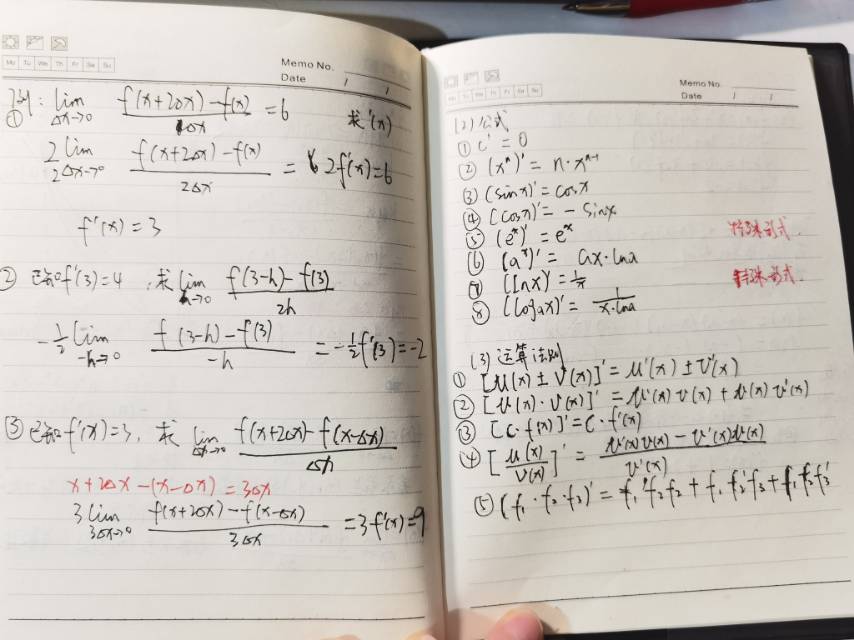 Mo Tu We Th Fr Sa Su
Memo No.
Date / /
例:① lim Δx→0 f(x+2Δx)-f(x) / Δx = 6 求f'(x)
2 lim 2Δx→0 f(x+2Δx)-f(x) / 2Δx = 2f'(x)=6
f'(x)=3
② 已知f'(3)=4,求 lim h→0 f(3-h)-f(3) / 2h
-1/2 lim -h→0 f(3-h)-f(3) / -h = -1/2 f'(3)=-2
③ 已知f'(x)=3,求 lim Δx→0 f(x+2Δx)-f(x-Δx) / Δx
x+2Δx-(x-Δx)=3Δx
3 lim 3Δx→0 f(x+2Δx)-f(x-Δx) / 3Δx = 3f'(x)=9
Mo Tu We Th Fr Sa Su
Memo No.
Date / /
(2)公式
① c'=0
② (xⁿ)'=n·xⁿ⁻¹
③ (sinx)'=cosx
④ (cosx)'=-sinx
⑤ (eˣ)'=eˣ 特殊形式.
⑥ (aˣ)'=ax·lna
⑦ (lnx)'=1/x 特殊形式.
⑧ (logax)'=1/x·lna
(3)运算法则
① [u(x)±v(x)]'=u'(x)±v'(x)
② [u(x)·v(x)]'=u'(x)v(x)+u(x)v'(x)
③ [c·f(x)]'=c·f'(x)
④ [u(x)/v(x)]'=u'(x)v(x)-v'(x)u(x) / v²(x)
⑤ (f₁·f₂·f₃)'=f₁'f₂f₂+f₁f₂'f₃+f₁f₂f₃'